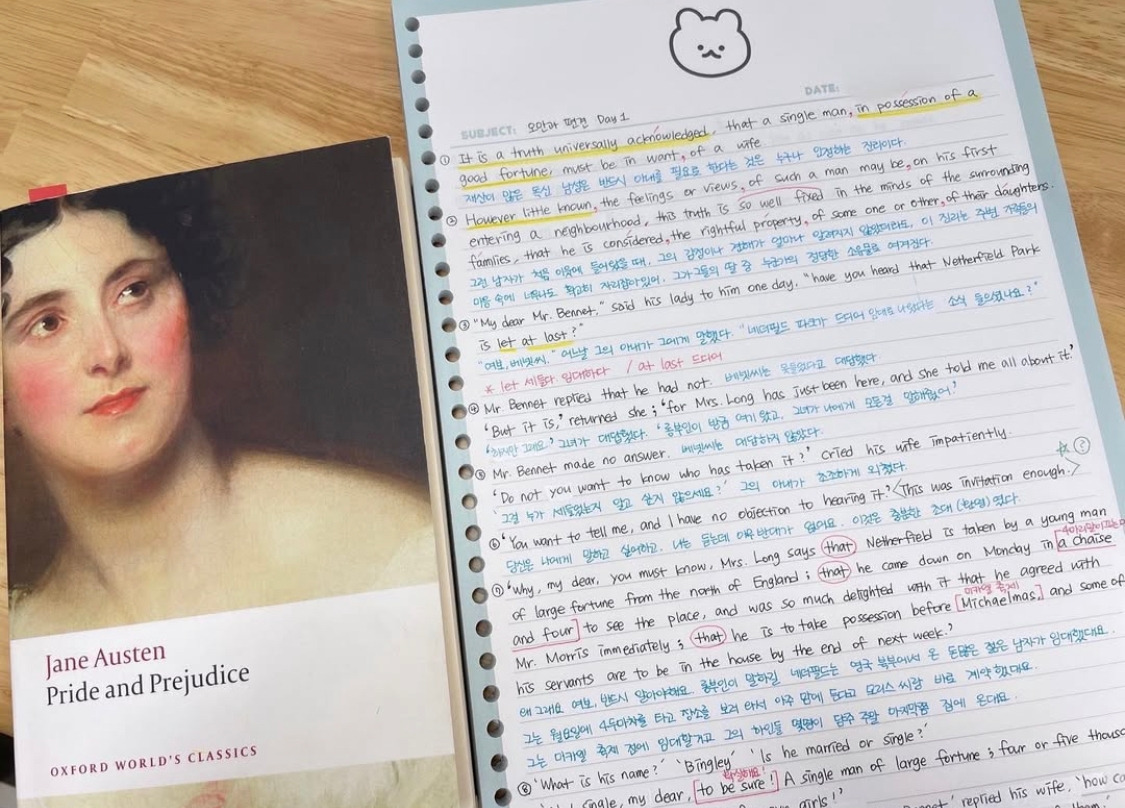 Jane Austen
Pride and Prejudice
OXFORD WORLD'S CLASSICS
DATE:
SUBJECT: 오만과 편견 Day 1
① It is a truth universally acknowledged, that a single man, in possession of a
good fortune, must be in want, of a wife
재산이 많은 독신 남성은 반드시 아내를 필요로 한다는 것은 누구나 인정하는 진리이다.
② However little known, the feelings or views, of such a man may be, on his first
entering a neighbourhood, this truth is so well fixed in the minds of the surrounding
families, that he is considered, the rightful property, of some one or other, of their daughters.
그런 남자가 처음 이웃에 들어왔을 때, 그의 감정이나 견해가 얼마나 알려지지 않았더라도, 이 진리는 주변 가족들의
마음 속에 너무나도 확고히 자리잡아있어, 그가 그들의 딸 중 누군가의 정당한 소유물로 여겨진다.
③ "My dear Mr. Bennet." said his lady to him one day. "have you heard that Netherfield Park
is let at last?"
"여보, 베넷씨." 어느날 그의 아내가 그에게 말했다. "네더필드 파크가 드디어 임대로 나왔다는 소식 들으셨나요?"
* let 세들다 임대하다 / at last 드디어
④ Mr. Bennet replied that he had not. 베넷씨는 못들었다고 대답했다.
'But it is,' returned she; 'for Mrs. Long has just been here, and she told me all about it.'
'하지만 그래요.' 그녀가 대답했다. '롱부인이 방금 여기 왔고, 그녀가 나에게 모든걸 말해줬어.'
⑤ Mr. Bennet made no answer. 베넷씨는 대답하지 않았다.
'Do not you want to know who has taken it?' cried his wife impatiently.
'그걸 누가 세들었는지 알고 싶지 않으세요?' 그의 아내가 초조하게 외쳤다.
⑥ 'You want to tell me, and I have no objection to hearing it.' <This was invitation enough.> ☆ ?
당신은 나에게 말하고 싶어하고, 나는 듣는데 아무 반대가 없어요. 이것은 충분한 초대 였다.
⑦ 'Why, my dear, you must know, Mrs. Long says that Netherfield is taken by a young man
of large fortune from the north of England; that he came down on Monday in a chaise
and four to see the place, and was so much delighted with it that he agreed with
미카엘 축제
Mr. Morris immediately; that he is to take possession before Michaelmas, and some of
his servants are to be in the house by the end of next week.'
왜 그래요 여보, 반드시 알아야해요. 롱부인이 말하길, 네더필드는 영국 북부에서 온 돈많은 젊은 남자가 임대했대요.
그는 월요일에 4두마차를 타고 장소를 보러 와서 아주 맘에 든다고 모리스씨랑 바로 계약했대요.
그는 미카엘 축제 전에 임대할거고 그의 하인들 몇명이 다음 주말 마지막쯤 집에 온대요.
⑧ 'What is his name?' 'Bingley' 'Is he married or single?'
single, my dear, to be sure! A single man of large fortune; four or five
girls!' replied his wife, 'how